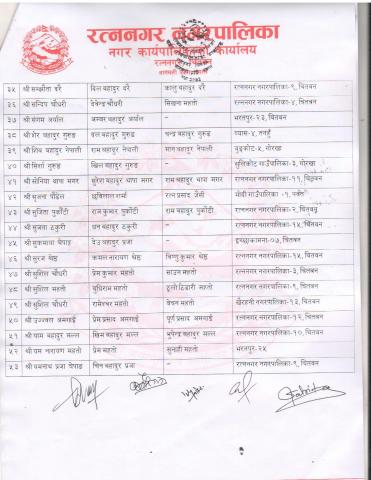 रत्ननगर नगरपालिका
नगर कार्यपालिकाको कार्यालय
३५ श्री सम्झौता दरै दिल बहादुर दरै कालु बहादुर दरै रत्ननगर नगरपालिका-९, चितवन
३६ श्री सन्दिप चौधरी देवेन्द्र चौधरी सिखना महतो रत्ननगर नगरपालिका-१, चितवन
३७ श्री संगम अर्याल जनार्दन अर्याल - भरतपुर-२३, चितवन
३८ श्री शेर बहादुर गुरुङ दल बहादुर गुरुङ चन्द्र बहादुर गुरुङ व्यास-४, तनहुँ
३९ श्री शिव बहादुर नेपाली राम बहादुर नेपाली मान बहादुर नेपाली गोरखा
४० श्री सिर्सा गुरुङ खिल बहादुर गुरुङ - गाउँपालिका-३, गोरखा
४१ श्री सोनिया थापा मगर सुरेश बहादुर थापा मगर राम बहादुर थापा मगर रत्ननगर नगरपालिका-११, चितवन
४२ श्री सृजना पौडेल छविलाल शर्मा रत्न प्रसाद जैसी मोदी गाउँपालिका -१, पर्वत
४३ श्री सुजिता पुर्कोटी राज कुमार पुर्कोटी राम बहादुर पुर्कोटी रत्ननगर नगरपालिका-२, चितवन
४४ श्री सुजता ठकुरी धन बहादुर ठकुरी - रत्ननगर नगरपालिका-१५, चितवन
४५ श्री सुकमाया चेपाङ देउ बहादुर प्रजा - इच्छाकामना-०७, चितवन
४६ श्री सुरज श्रेष्ठ कमल नारायण श्रेष्ठ विष्णु कुमार श्रेष्ठ रत्ननगर नगरपालिका-१५, चितवन
४७ श्री सुशिल चौधरी प्रेम कुमार महतो साउन महतो रत्ननगर नगरपालिका-३, चितवन
४८ श्री सुशिल महतो बुधिराम महतो ठूलो टिहारी महतो रत्ननगर नगरपालिका-१, चितवन
४९ श्री सुशिल चौधरी रामेश्वर महतो बेचन महतो खैरहनी नगरपालिका-१३, चितवन
५० श्री उज्ज्वल अमगाई प्रेम प्रसाद अमगाई पूर्ण प्रसाद अमगाई रत्ननगर नगरपालिका-१२, चितवन
५१ श्री याम बहादुर मल्ल खिम बहादुर मल्ल भुपेन्द्र बहादुर मल्ल रत्ननगर नगरपालिका-१०, चितवन
५२ श्री यम नारायण महतो प्रेम महतो सुनाही महतो भरतपुर-२५
५३ श्री यमनाथ प्रजा चेपाङ चिन बहादुर प्रजा - रत्ननगर नगरपालिका-९, चितवन